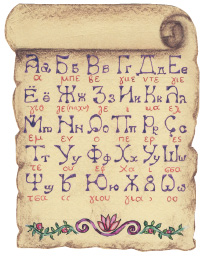 Аа Бб Вв Гг Дд Ее
α μπε βε γκε ντε γιε
Ёё Жж Зз Ии Кк Лл
γιο ζε ι κα ελ
Мм Нн Оо Пп Рр Сс
εμ εν ο πε ερ ες
Тт Уу Фф Хх Шш
τε ου εφ χα ι
Ъ Юю
τσα γιου για ο